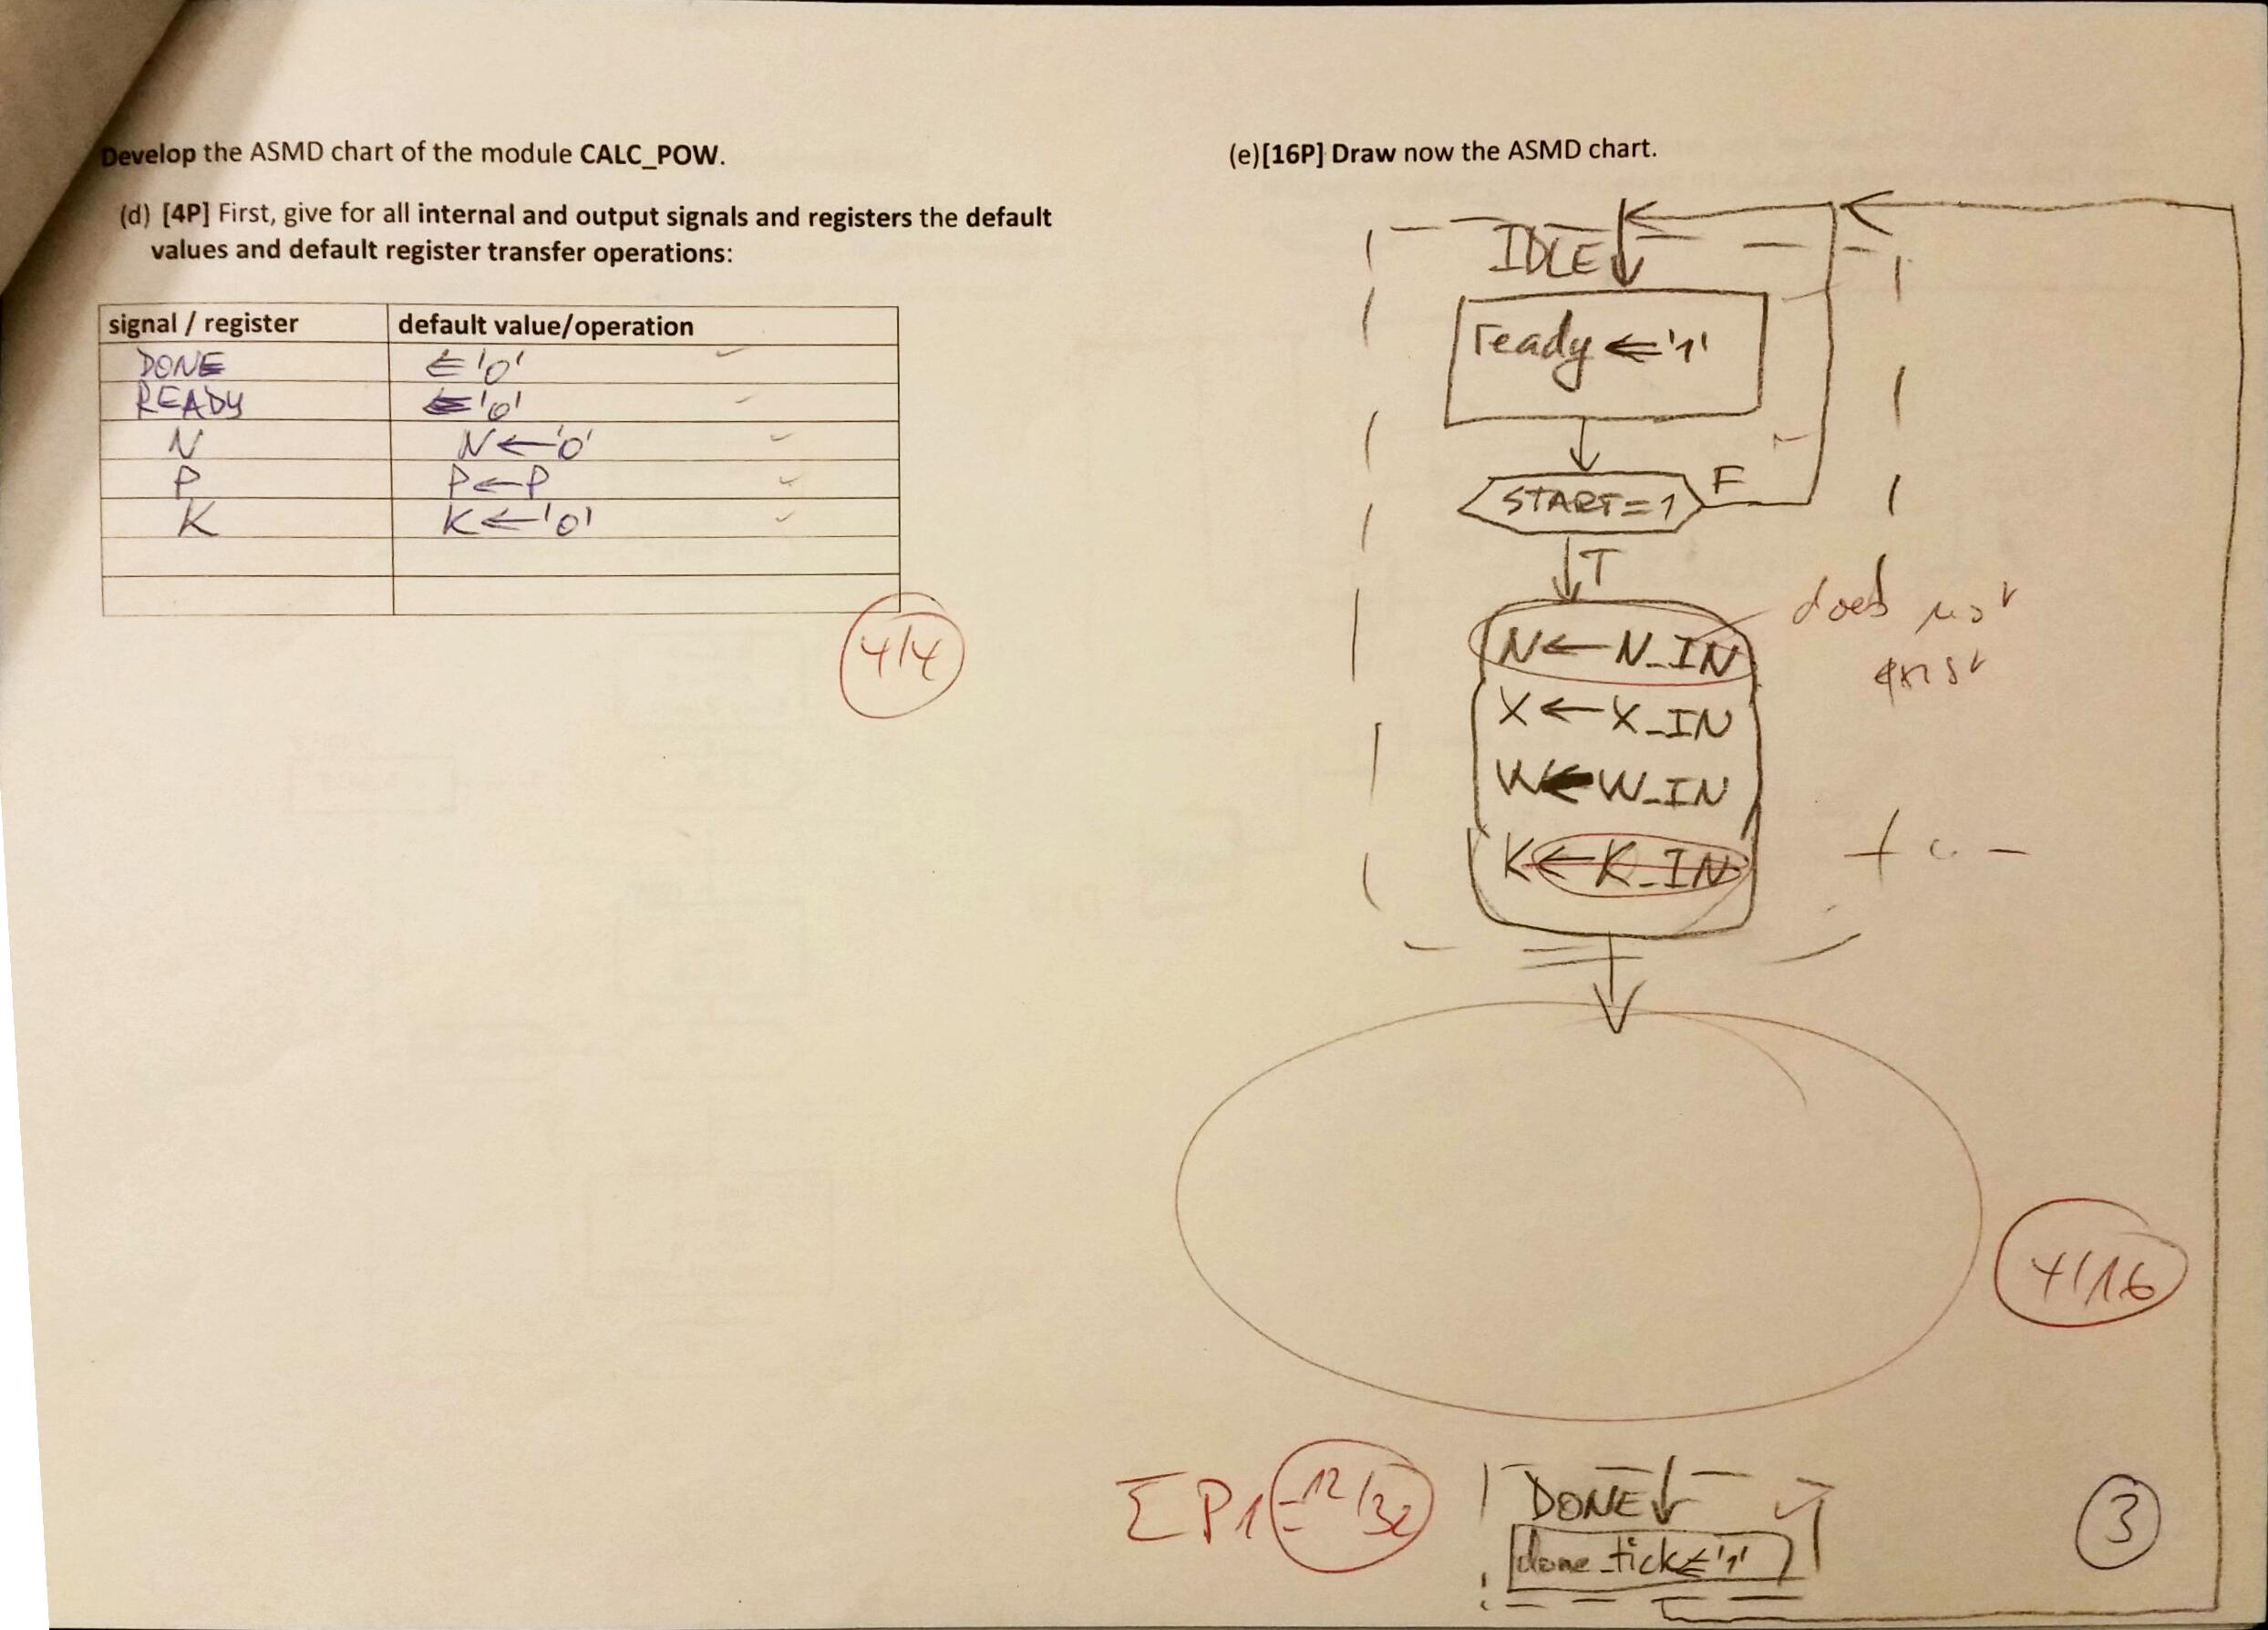 Develop the ASMD chart of the module CALC_POW.
(d) [4P] First, give for all internal and output signals and registers the default
values and default register transfer operations:
signal / register default value/operation
DONE ⇐'0'
READY ⇐'0'
N N←'0'
P P←P
K K←'0'
4/4
(e)[16P] Draw now the ASMD chart.
IDLE
ready ⇐'1'
START=1 F
T
N← N_IN
does not
exist
X← X_IN
W← W_IN
K← K_IN
4/16
ΣP1=12/32
DONE
done_tick⇐'1'
3